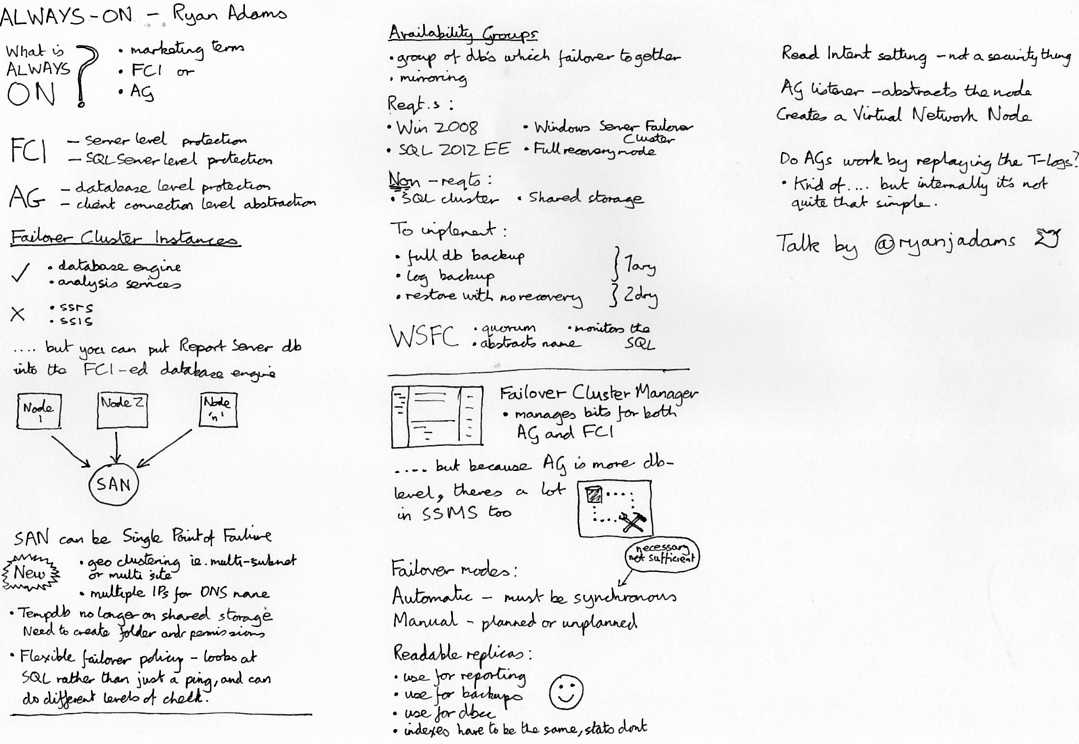 ALWAYS-ON - Ryan Adams
What is
ALWAYS
ON ?
• marketing term
• FCI or
• AG
FCI
- Server level protection
- SQL Server level protection
AG
- database level protection
- client connection level abstraction
Failover Cluster Instances
✓
• database engine
• analysis services
X
• ssrs
• ssis
.... but you can put Report Server db
into the FCI-ed database engine
Node 1
Node 2
Node 'n'
SAN
SAN can be Single Point of Failure
New
• geo clustering ie. multi-subnet
or multi site
• multiple IPs for DNS name
• Tempdb no longer on shared storage
Need to create folder and permissions
• Flexible failover policy - looks at
SQL rather than just a ping, and can
do different levels of check.
Availability Groups
• group of db's which failover together
• mirroring
Reqt.s :
• Win 2008
• SQL 2012 EE
• Windows Server Failover
Cluster
• Full recovery mode
Non - reqts :
• SQL cluster • Shared storage
To implement :
• full db backup
• log backup
} 1ary
• restore with norecovery } 2dry
WSFC
• quorum • monitors the
• abstracts name SQL
Failover Cluster Manager
• manages bits for both
AG and FCI
.... but because AG is more db-
level, theres a lot
in SSMS too
necessary
not sufficient
Failover modes:
Automatic - must be synchronous
Manual - planned or unplanned
Readable replicas:
• use for reporting
• use for backups
• use for dbcc
• indexes have to be the same, stats dont
Read Intent setting - not a security thing
AG listener - abstracts the node
Creates a Virtual Network Node
Do AGs work by replaying the T-logs?
• Kind of .... but internally it's not
quite that simple.
Talk by @ryanjadams